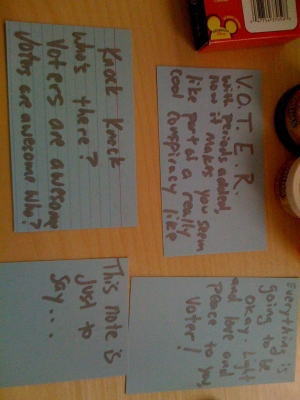 Knock Knock
Who's there?
Voters are awesome
Voters are awesome who?
V.O.T.E.R.
with periods added,
now it makes you seem
like part of a really
cool conspiracy like
This note is
just to
say...
Everything is
going to be
okay. Light
and love and
peace to you,
Voter!